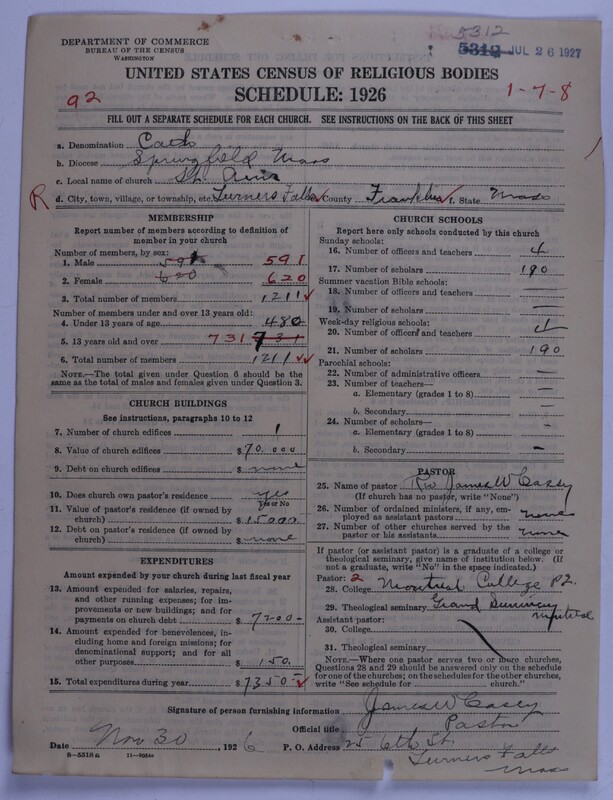 5312
DEPARTMENT OF COMMERCE
BUREAU OF THE CENSUS
WASHINGTON
5312 JUL 26 1927
UNITED STATES CENSUS OF RELIGIOUS BODIES
SCHEDULE: 1926
92
1-7-8
FILL OUT A SEPARATE SCHEDULE FOR EACH CHURCH. SEE INSTRUCTIONS ON THE BACK OF THIS SHEET
a. Denomination Cath
b. Diocese Springfield Mass
c. Local name of church St. Anns
R d. City, town, village, or township, etc. Turners Falls County Franklin f. State Mass
MEMBERSHIP
Report number of members according to definition of
member in your church
Number of members, by sex:
1. Male 591 591
2. Female 620 620
3. Total number of members 1211
Number of members under and over 13 years old:
4. Under 13 years of age 480
5. 13 years old and over 731 731
6. Total number of members 1211
NOTE.—The total given under Question 6 should be
same as the total of males and females given under Question 3.
CHURCH BUILDINGS
See instructions, paragraphs 10 to 12
7. Number of church edifices 1
8. Value of church edifices $ 70,000
9. Debt on church edifices $ none
10. Does church own pastor's residence yes
Yes or No
11. Value of pastor's residence (if owned by
church) $ 15000
12. Debt on pastor's residence (if owned by
church) $ none
EXPENDITURES
Amount expended by your church during last fiscal year
13. Amount expended for salaries, repairs,
and other running expenses; for im-
provements or new buildings; and for
payments on church debt $ 7200-
14. Amount expended for benevolences, in-
cluding home and foreign missions; for
denominational support; and for all
other purposes $ 150.
15. Total expenditures during year $ 7350-
CHURCH SCHOOLS
Report here only schools conducted by this church
Sunday schools:
16. Number of officers and teachers 4
17. Number of scholars 190
Summer vacation Bible schools:
18. Number of officers and teachers —
19. Number of scholars —
Week-day religious schools:
20. Number of officers and teachers 4
21. Number of scholars 190
Parochial schools:
22. Number of administrative officers —
23. Number of teachers—
a. Elementary (grades 1 to 8) —
b. Secondary —
24. Number of scholars—
a. Elementary (grades 1 to 8) —
b. Secondary —
PASTOR
25. Name of pastor Rev James W Casey
(If church has no pastor, write "None")
26. Number of ordained ministers, if any, em-
ployed as assistant pastors none
27. Number of other churches served by the
pastor or his assistants none
If pastor (or assistant pastor) is a graduate of a college or
theological seminary, give name of institution below. (If
not a graduate, write "No" in the space indicated.)
Pastor: 2
28. College Montreal College P2.
29. Theological seminary Grand Seminary
Montreal
Assistant pastor:
30. College
31. Theological seminary
NOTE.—Where one pastor serves two or more churches,
Questions 28 and 29 should be answered only on the schedule
for one of the churches; on the schedules for the other churches,
write "See schedule for church."
Signature of person furnishing information James W Casey
Official title Pastor
Date Nov 30, 1926 P. O. Address 25 6th St.
Turners Falls
Mass
8—5318a